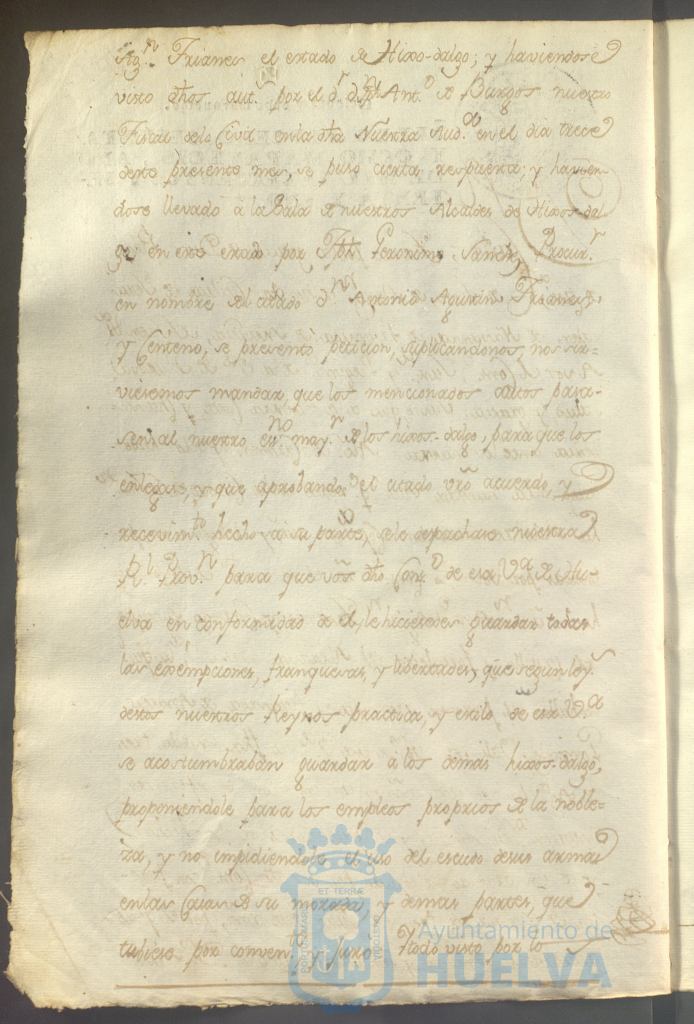 Ag.n Frianes el estado de Hixo-dalgo; y haviendose
visto dhos aut.s por el d.r d.n Ant.o de Burgos nuestro
Fiscal delo Civil enla dha Nuestra Aud.a en el dia trece
deste presente mes, se puso cierta respuesta; y havien-
dose llevado a la Sala de nuestros Alcaldes de Hixos-dal
go en este estado por Geronimo Sanchz Procur.r
en nombre del citado d.n Antonio Agustin Frianes,
y Centeno, se presentò peticion, suplicandonos, nos sir-
vieremos mandar, que los mencionados autos pasa-
sen al nuestro es.no may.r de los hixos-dalgo, para que los
entregàs, y que aprobando el citado vro acuerdo, y
recevim.to hecho a su parte, sele despachase nuestra
R.l Prov.n para que vos dho Conz.o de esa V.a de Hu-
elva en conformidad de el, le hicieredes guardar todas
las exempciones, franquesas, y libertades, que segun ley.s
destos nuestros Reynos practica, y estilo de esa V.a
se acostumbraban guardar a los demas hixos-dalgo,
proponiendole para los empleos proprios de la noble=
za, y no impidiendole el uso del escudo desus armas
enlas Casas de su morada, y demas partes, que
tubiese por conven.te y juro Y todo visto por lo
ET TERRÆ
PORTUS MARIS
CUSTODIA
Ayuntamiento de
HUELVA